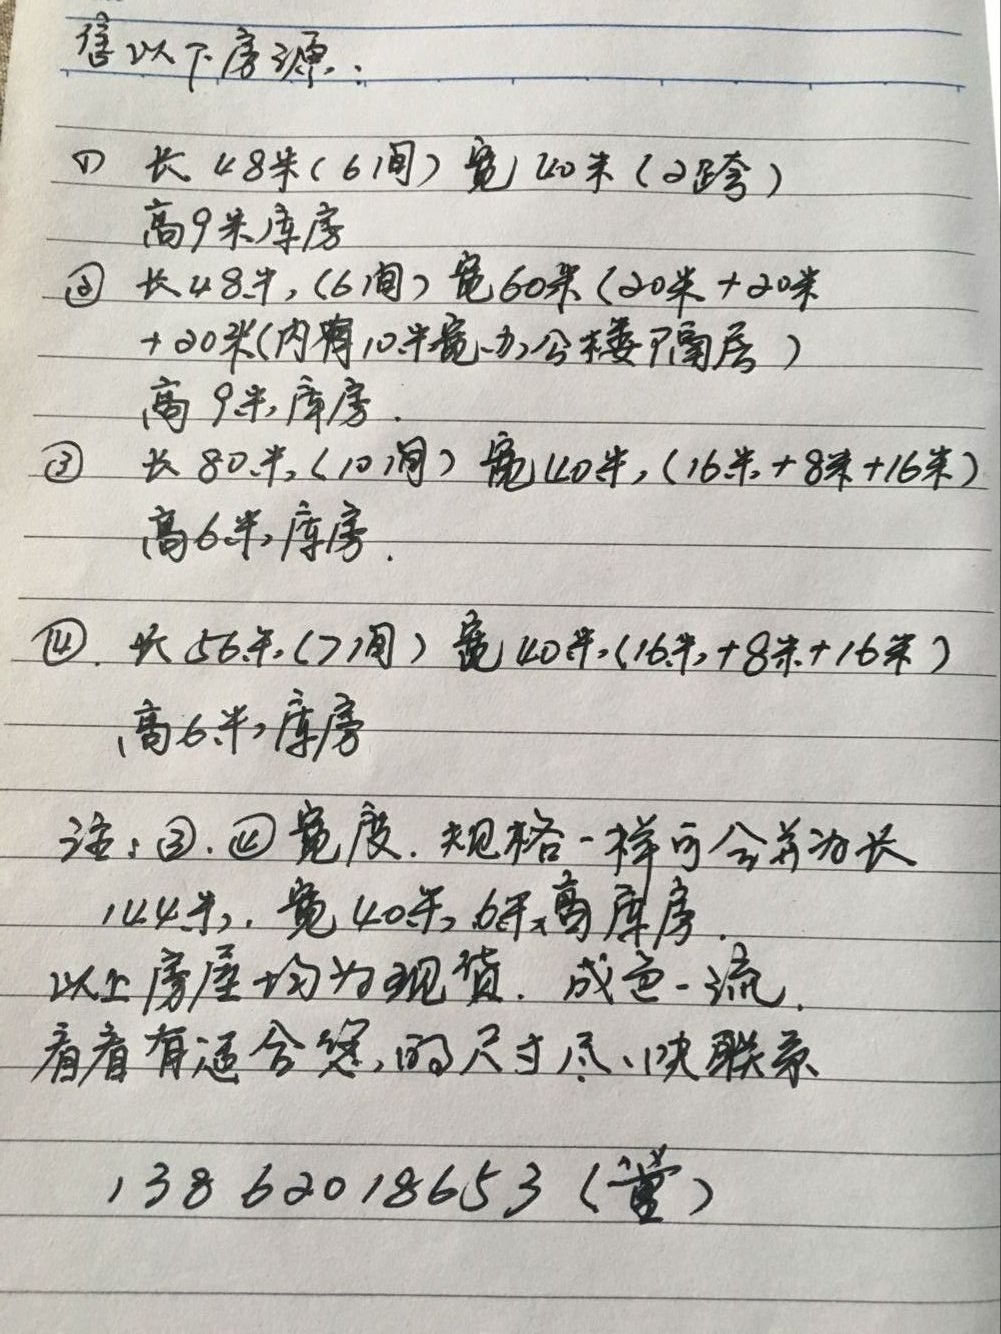 售以下房源：
① 长48米(6间)宽40米(2跨)
高9米库房
② 长48米,(6间)宽60米(20米+20米
+20米(内有10米宽办公楼隔层)
高9米库房.
③ 长80米,(10间)宽40米,(16米+8米+16米)
高6米库房.
④. 长56米,(7间)宽40米,(16米+8米+16米)
高6米库房
注：③.④宽度.规格一样可合并为长
144米,.宽40米,6米高库房.
以上房屋均为现货.成色一流.
看看有适合您的尺寸尽快联系
13862018653 (董)